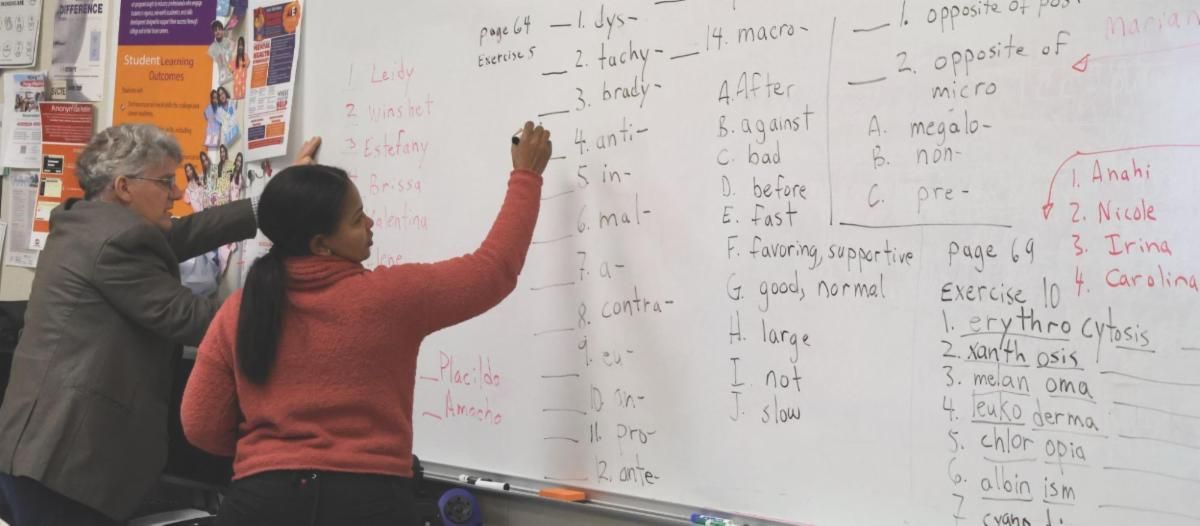 DIFFERENCE
Student Learning
Outcomes
page 64
Exercise 5
1. dys-
2. tachy-
3. brady-
4. anti-
5 in-
6. mal-
7. a-
8. contra-
9. eu-
10. an-
11. pro-
12. ante-
14. macro-
A. After
B. against
C. bad
D. before
E. fast
F. favoring, supportive
G. good, normal
H. large
I. not
J. slow
1 Leidy
2 Winshet
3 Estefany
Brissa
Placildo
Amocho
1. opposite of
2. opposite of
micro
A. megalo-
B. non-
C. pre-
1. Anahi
2. Nicole
3. Irina
4. Carolina
page 69
Exercise 10
1. erythro cytosis
2. xanth osis
3. melan oma
4. leuko derma
5. chlor opia
6. albin ism
7